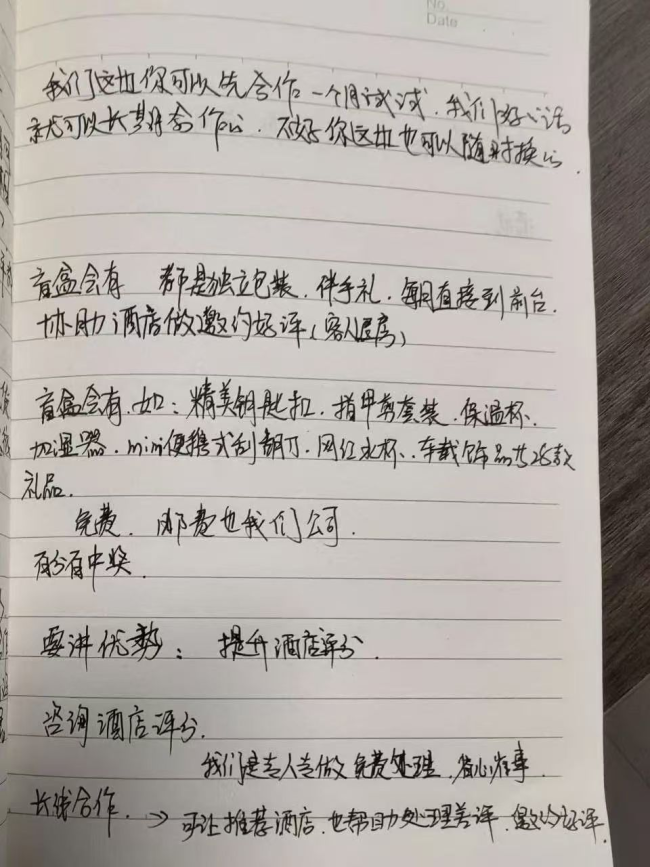 No.
Date
我们这边你可以先合作一个月试试.我们好的话
就可以长期合作的.不好你这边也可以随时换的.
盲盒会有 都是独立包装.伴手礼.每月直接到前台.
协助酒店做邀约好评(客人退房)
盲盒会有.如:精美钥匙扣.指甲剪套装.保温杯.
加湿器.mini便携式刮胡刀.网红水杯.车载饰品共28款
礼品.
免费.邮费也我们公司.
百分百中奖.
要讲优势: 提升酒店评分.
咨询酒店评分.
我们是专人专做 免费处理.省心省事.
长线合作. → 可让推荐酒店.也帮助处理差评.邀约好评.